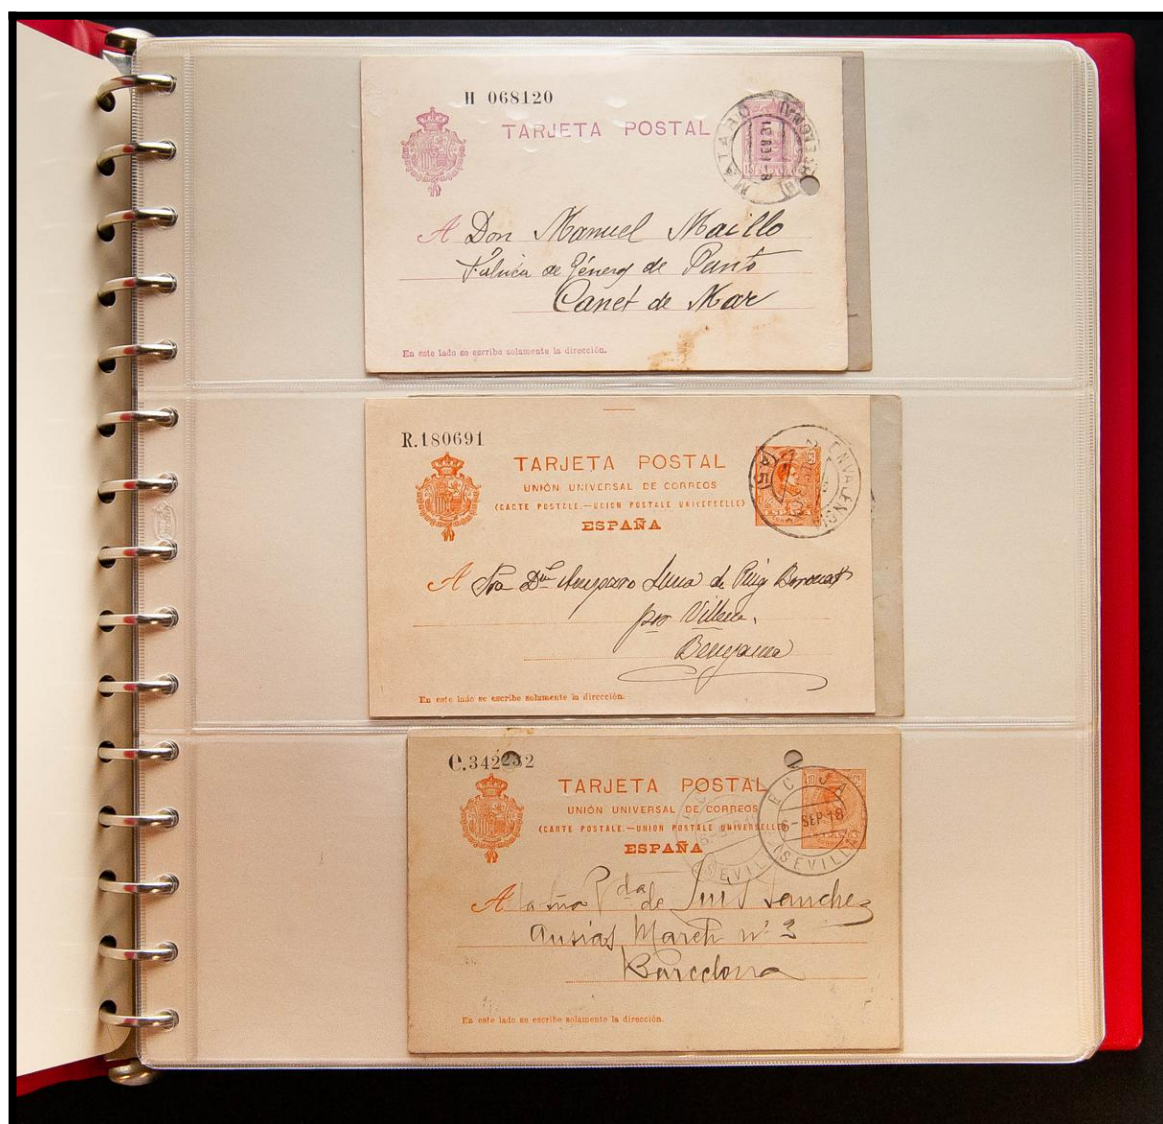 H 068120
TARJETA POSTAL
MATARÓ
A Don Manuel Maillo
Fábrica de Géneros de Punto
Canet de Mar
En este lado se escribe solamente la dirección.
R.180691
TARJETA POSTAL
UNIÓN UNIVERSAL DE CORREOS
(CARTE POSTALE.—UNION POSTALE UNIVERSELLE)
ESPAÑA
A Sra Dª Amparo de Puig
por Villena.
Benejama
En este lado se escribe solamente la dirección.
C.342232
TARJETA POSTAL
UNIÓN UNIVERSAL DE CORREOS
(CARTE POSTALE.—UNION POSTALE UNIVERSELLE)
ESPAÑA
ECIJA
6-SEP 18
(SEVILLA)
A la Sra Vda de Luis Sanchez
Ausias March nº 3
Barcelona
En este lado se escribe solamente la dirección.